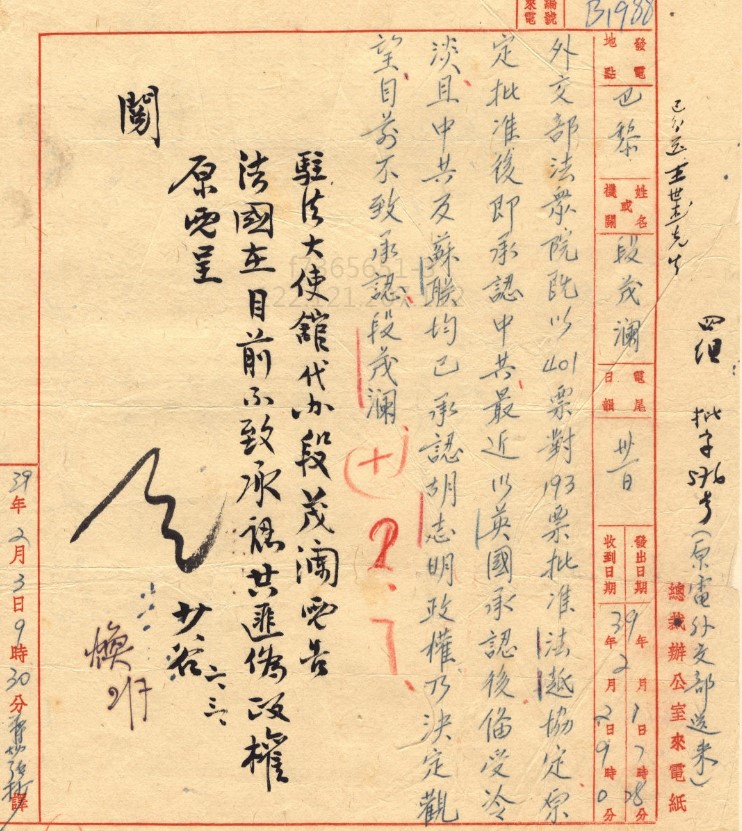 總裁辦公室來電紙
四組 批字576号(原電外交部送來)
已分送王世杰先生
來電
編號
B1988
發電地點 巴黎
姓名或機關 段茂澜
電尾日韻 卅一日
發出日期 39年2月1日7時38分
收到日期 年2月2日9時0分
外交部法衆院既以401票對193票批准法越協定原
定批准後即承認中共最近以英國承認後倫受冷
淡且中共及蘇联均已承認胡志明政權乃决定觀
望目前不致承認段茂澜
(十)
2.7.
駐法大使館代办段茂澜電告
法國在目前不致承認共匪偽政權
原電呈
閱
六.三
煥
2/7
39年2月3日9時30分
譯